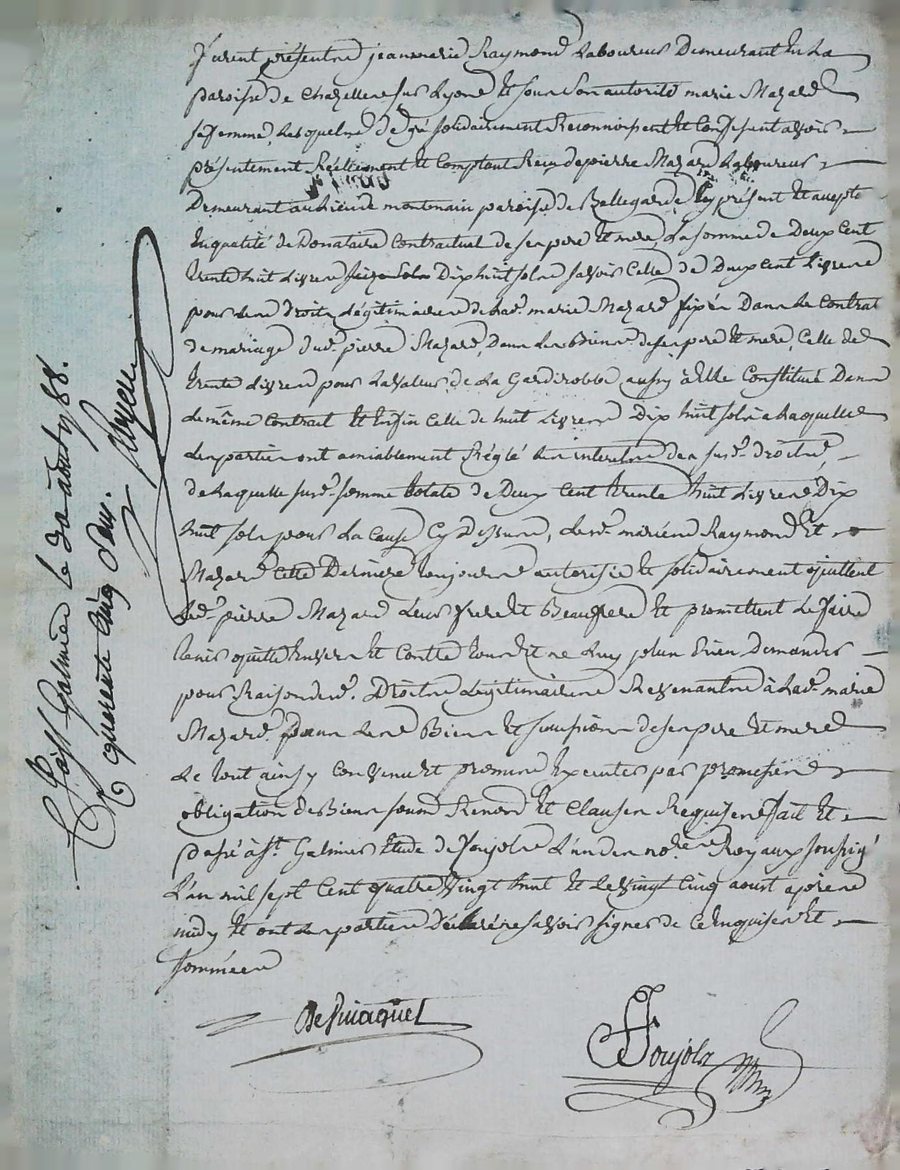 furent présents jeanmarie Raymond Laboureur Demeurant En La
paroisse de Chazelle sur Lyon Et sous Son autorité marie Mazard
sa femme, Lesquels de gré solidairement Reconnoissent Et Confessent avoir
présentement Réellement Et Comptant Reçu de pierre Mazard Laboureur
Demeurant au Lieu de montenain paroisse de Bellegarde Cy présent Et accepte
En qualité de Donataire Contractuel de ses pere Et mere, La somme de Deux Cent
trente huit Livres Dix huit sols savoir Celle de deux Cent Livres
pour Les droits Légitimaires de Lad. marie Mazard fixés Dans Le Contrat
de mariage dud. pierre Mazard, Dans Les Biens de ses pere Et mere, Celle de
trente Livres pour La valeur de La Garderobbe aussy à Elle Constitué Dans
Le même Contrat Et Enfin Celle de huit Livres Dix huit sols a Laquelle
Les parties ont amiablement Réglé Les interets des susd. droits,
de Laquelle susd. somme totale de Deux Cent trente huit Livres Dix
huit sols pour La Cause Cy dessus, Les d. mariés Raymond Et
Mazard Cette Derniere toujours autorisée Et solidairement quittent
Led. pierre Mazard Leur frere Et Beaufrere Et promettent Le faire
tenir quitte Envers Et Contre tous Et ne Luy plus Rien Demander
pour Raison des d. Droits Légitimaires Revenants à Lad. marie
Mazard dans Les Biens Et succession de ses pere Et mere
Le tout ainsy Convenu Et promis Executer par promesses
obligation de Biens soum. Renon. Et Clauses Requises fait Et
passé à St. Galmier Etude de foujols L'un des no.res Royaux soussigné
L'an mil sept Cent quatre vingt huit Et Le vingt Cinq aoust après
midy Et ont Les parties Déclaré ne savoir signer de Ce Enquises Et
sommées
foujols
St Galmier le 30 aout 1788.
quarente cinq sous.